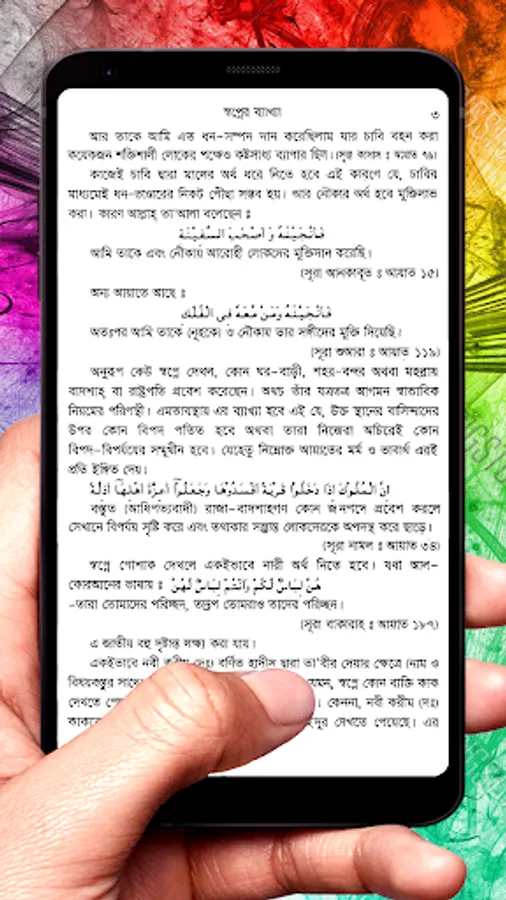 স্বপ্নের ব্যাখ্যা ৩
আর তাকে আমি এত ধন-সম্পদ দান করেছিলাম যার চাবি বহন করা
কয়েকজন শক্তিশালী লোকের পক্ষেও কষ্টসাধ্য ব্যাপার ছিল। (সূরা কাসাস ঃ আয়াত ৭৬)
কাজেই চাবি দ্বারা মালের অর্থ ধরে নিতে হবে এই কারণে যে, চাবির
মাধ্যমেই ধন-ভান্ডারের নিকট পৌঁছা সম্ভব হয়। আর নৌকার অর্থ হবে মুক্তিলাভ
করা। কারণ আল্লাহ্ তা'আলা বলেছেন ঃ
فَاَنْجَيْنٰهُ وَ اَصْحٰبَ السَّفِيْنَةِ
আমি তাকে এবং নৌকায় আরোহী লোকদের মুক্তিদান করেছি।
(সূরা আনকাবূত ঃ আয়াত ১৫)
অন্য আয়াতে আছে ঃ
فَاَنْجَيْنٰهُ وَمَنْ مَّعَهٗ فِى الْفُلْكِ
অতঃপর আমি তাকে (নূহকে) ও নৌকায় তার সঙ্গীদের মুক্তি দিয়েছি।
(সূরা শুআরা ঃ আয়াত ১১৯)
অনুরূপ কেউ স্বপ্নে দেখল, কোন ঘর-বাড়ী, শহর-বন্দর অথবা মহল্লায়
বাদশাহ্ বা রাষ্ট্রপতি প্রবেশ করেছেন। অথচ তাঁর যত্রতত্র আগমন স্বাভাবিক
নিয়মের পরিপন্থী। এমতাবস্থায় এর ব্যাখ্যা হবে এই যে, উক্ত স্থানের বাসিন্দাদের
উপর কোন বিপদ পতিত হবে অথবা তারা নিজেরা অচিরেই কোন
বিপদ-বিপর্যয়ের সম্মুখীন হবে। যেহেতু নিম্নোক্ত আয়াতের মর্ম ও ভাবার্থ এরই
প্রতি ইঙ্গিত দেয়।
اِنَّ الْمُلُوْكَ اِذَا دَخَلُوْا قَرْيَةً اَفْسَدُوْهَا وَجَعَلُوْٓا اَعِزَّةَ اَهْلِهَآ اَذِلَّةً
বস্তুত (আধিপত্যবাদী) রাজা-বাদশাহগণ কোন জনপদে প্রবেশ করলে
সেখানে বিপর্যয় সৃষ্টি করে এবং তথাকার সম্ভ্রান্ত লোকদেরকে অপদস্থ করে ছাড়ে।
(সূরা নামল ঃ আয়াত ৩৪)
স্বপ্নে পোশাক দেখলে একইভাবে নারী অর্থ নিতে হবে। যথা আল-
কোরআনের ভাষায় ঃ هُنَّ لِبَاسٌ لَّكُمْ وَاَنْتُمْ لِبَاسٌ لَّهُنَّ
-তারা তোমাদের পরিচ্ছদ, তদ্রূপ তোমরাও তাদের পরিচ্ছদ।
(সূরা বাকারাহ ঃ আয়াত ১৮৭)
এ জাতীয় বহু দৃষ্টান্ত লক্ষ্য করা যায়।
একইভাবে নবী করীম (দঃ) বর্ণিত হাদীস দ্বারা তা'বীর দেয়ার ক্ষেত্রে (নাম ও
বিষয়বস্তুর সাথে যেমন, স্বপ্নে কোন ব্যক্তি কাক
দেখতে । কেননা, নবী করীম (দঃ)
দেখতে পেয়েছে। এর